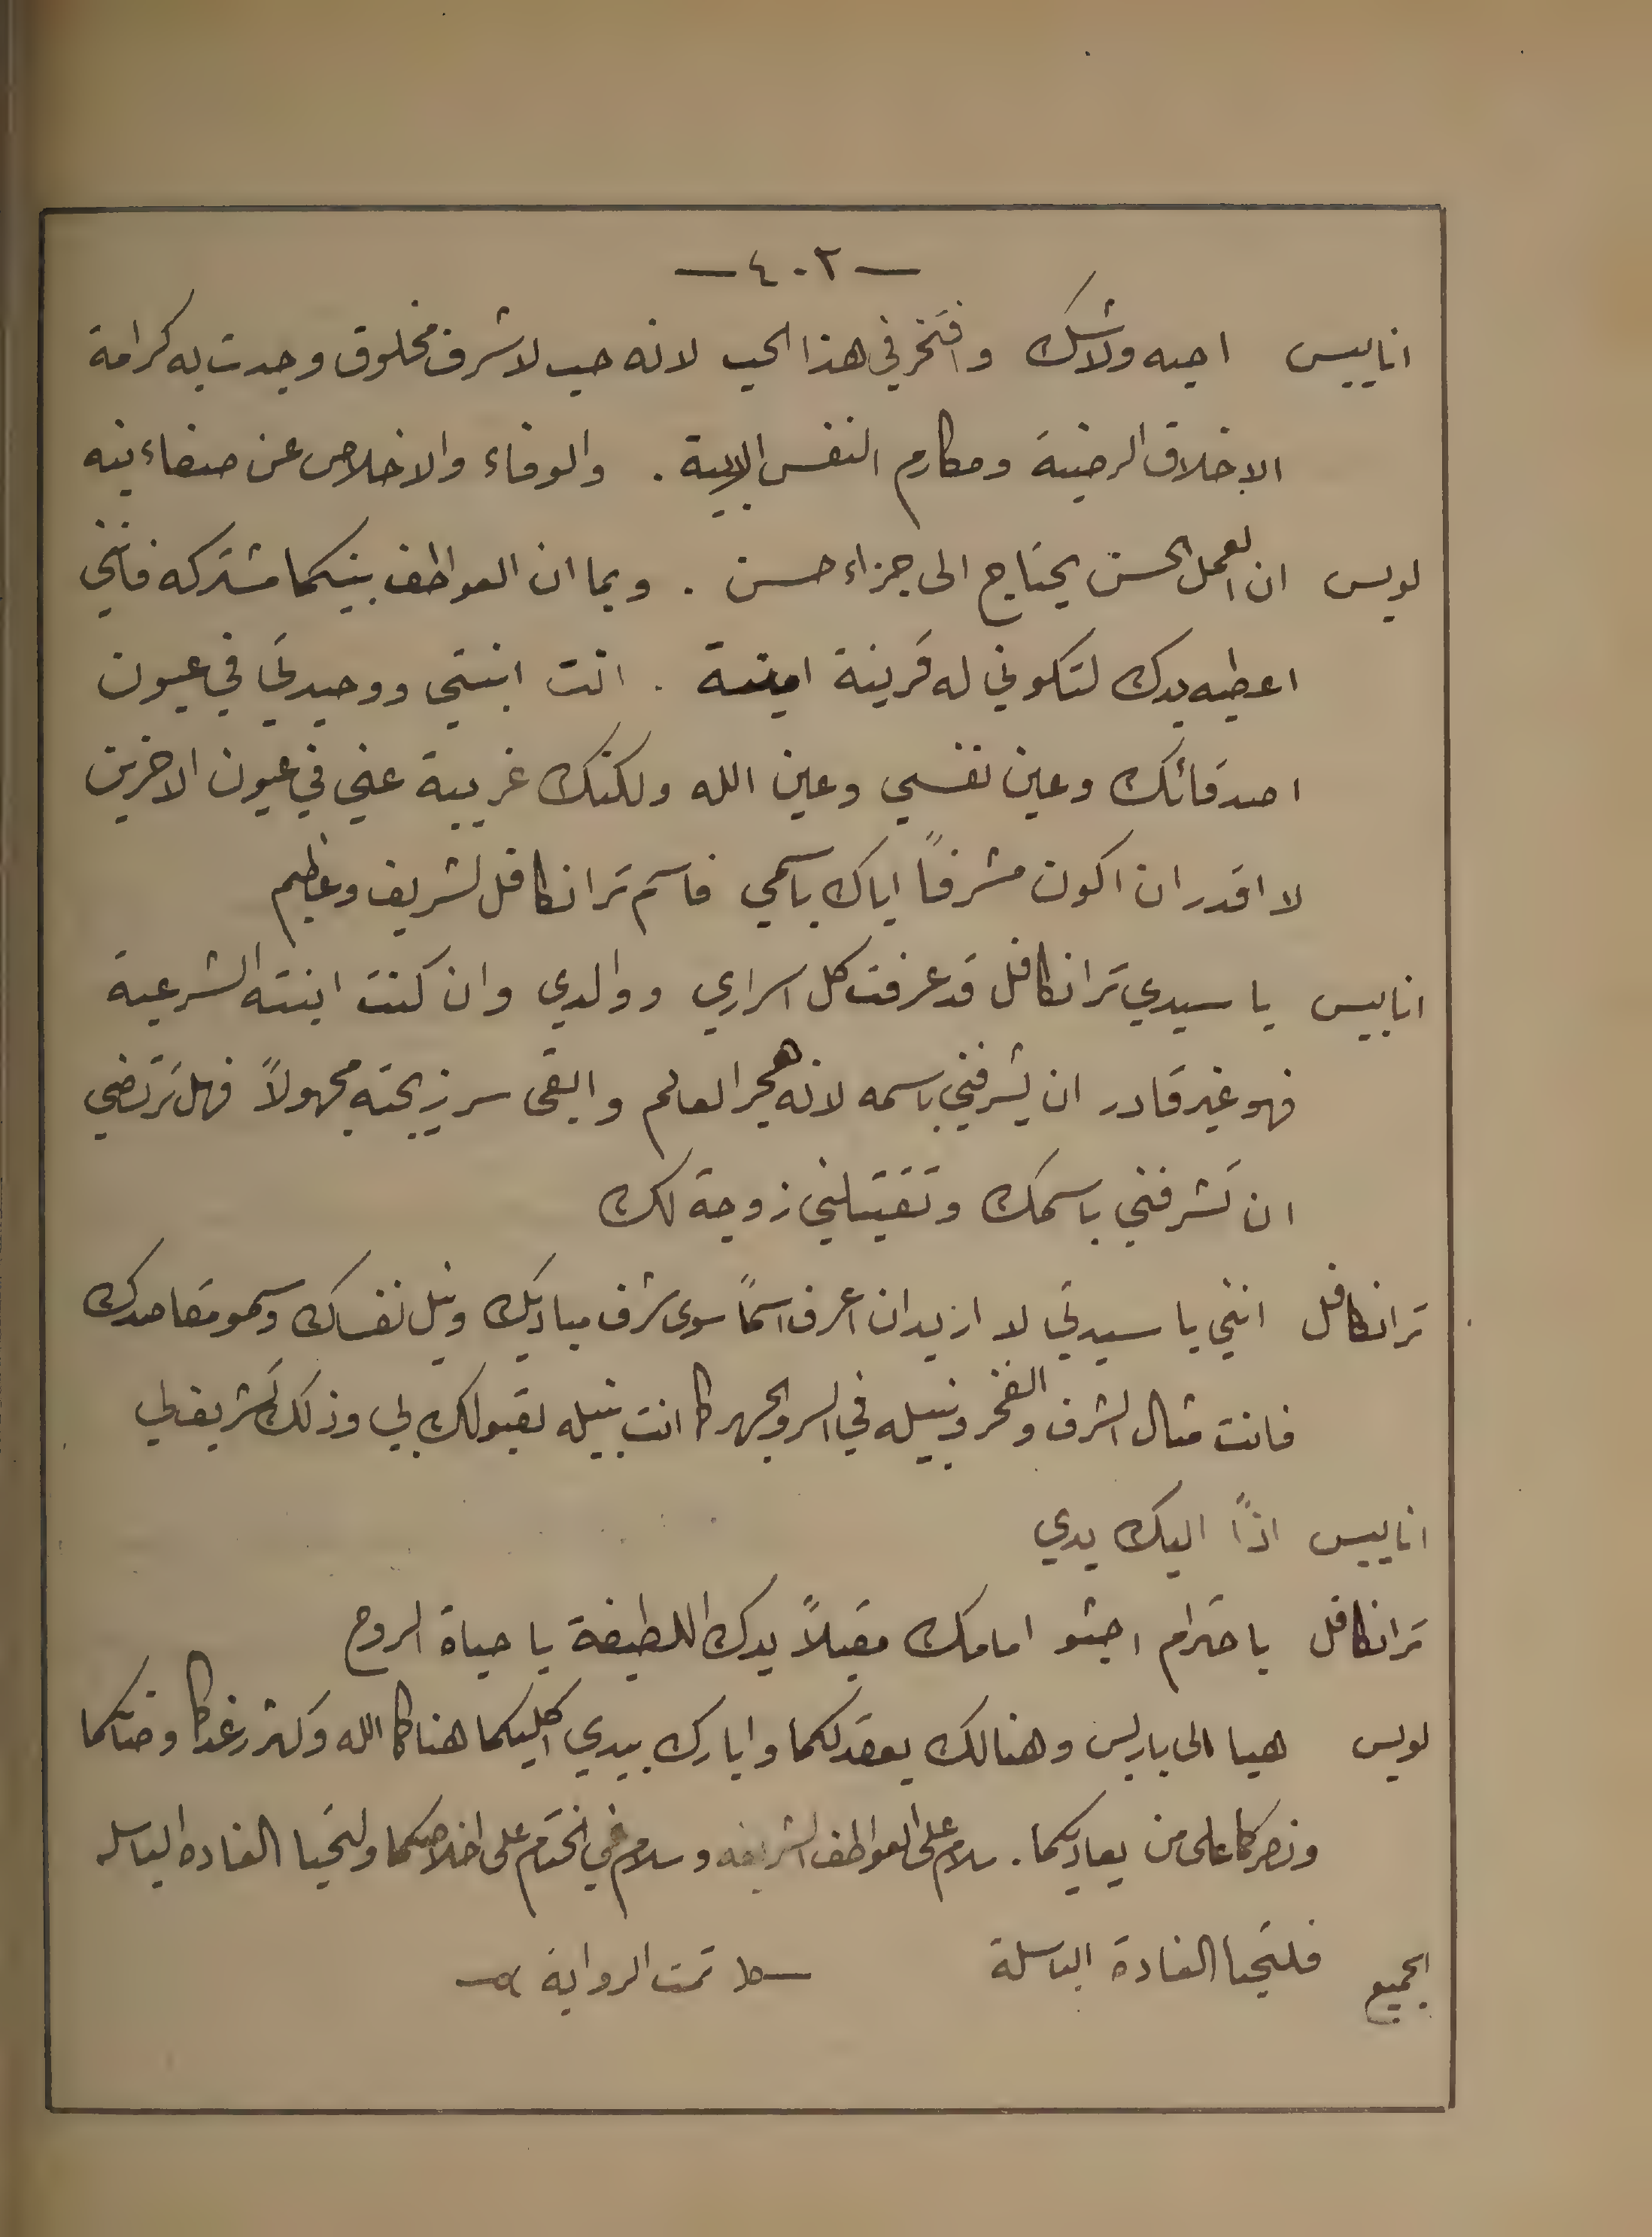 — ٤٠٢ —
اناييس احبه ولاشك وافتخر في هذا الحب لانه حب لاشرف مخلوق وجدت به كرامة
الاخلاق الرضية ومكارم النفس الابية . والوفاء والاخلاص عن صفاء نيه
لويس ان العمل الحسن يحتاج الى جزاء حسن . وبما ان العواطف بينكما مشتركه فانني
اعطيه يدك لتكوني له قرينة امينة . انت ابنتي ووحيدتي في عيون
اصدقائك وعين نفسي وعين الله ولكنك غريبة عني في عيون الاخرين
لا اقدر ان اكون مشرفاً اياك باسمي فاسم ترانكافل لشريف وعظيم
اناييس يا سيدي ترانكافل قد عرفت كل اسراري ووالدي وان كنت ابنته الشرعية
فهو غير قادر ان يشرفني باسمه لانه هجر العالم وابقى سر زيجته مجهولاً فهل ترتضي
ان تشرفني باسمك وتقتبلني زوجة لك
ترانكافل انني يا سيدتي لا ازيد ان اعرف اسماً سوى شرف مباديك ونبل نفسك وسمو مقاصدك
فانت مثال الشرف والفخر ونبيله في السر والجهر كما انت نبيله بقبولك بي وذلك تشريف لي
اناييس اذاً اليك يدي
ترانكافل باحترام اجثو امامك مقبلاً يدك اللطيفة يا حياة الروح
لويس هيا الى باريس وهنالك يعقد لكما وابارك بيدي اكليلكما هناكما الله وكثر رغدكما وضاكما
ونصركما على من يعاديكما . سلام على العواطف الشريفه وسلام في الختام على اخلاصكما ولتحيا الغاده الباسله
الجميع فلتحيا الغادة الباسلة — تمت الرواية —